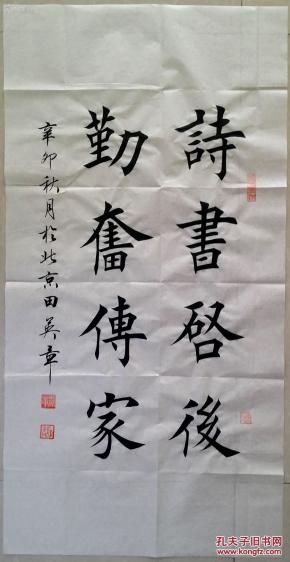 詩書啓後
勤奮傳家
辛卯秋月於北京田英章
孔夫子旧书网